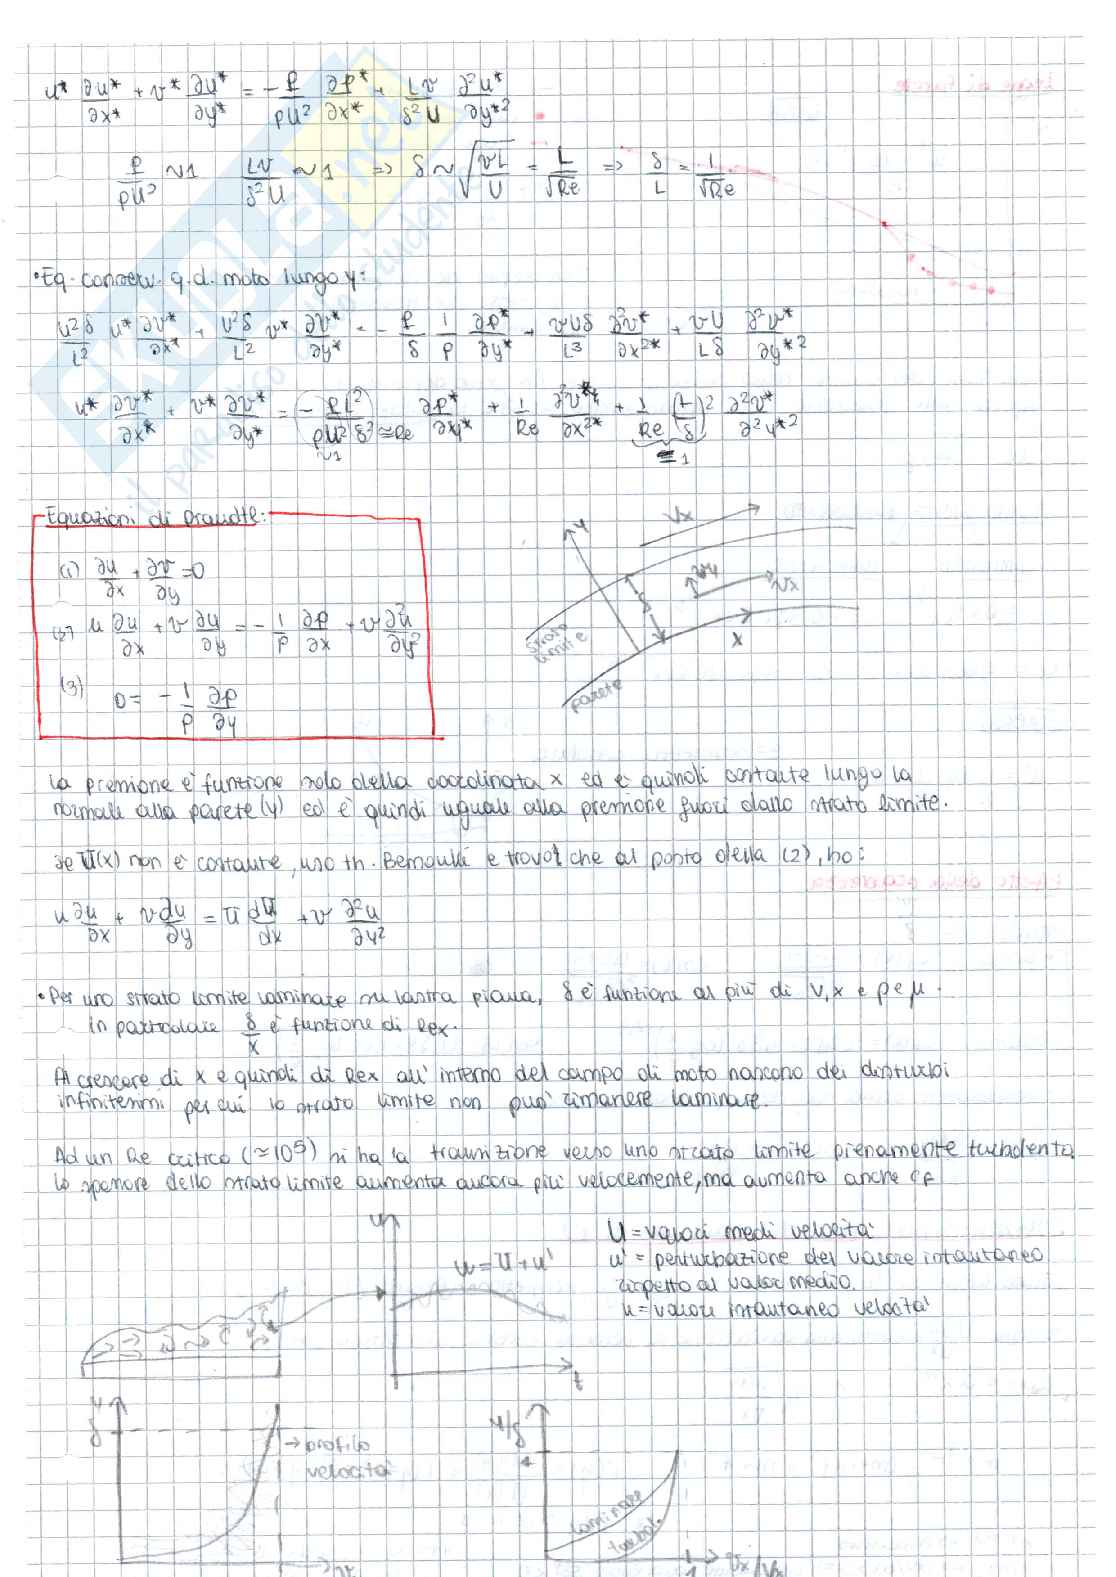 u* ∂u*/∂x* + v* ∂u*/∂y* = - P/ρU² ∂p*/∂x* + Lν/δ²U ∂²u*/∂y*²
P/ρU² ~1 Lν/δ²U ~1 => δ ~ √(νL/U) = L/√Re => δ/L = 1/√Re
• Eq. conserv. q.d. moto lungo y:
U²δ/L² u* ∂v*/∂x* + U²δ/L² v* ∂v*/∂y* = - P/δ 1/ρ ∂p*/∂y* + νUδ/L³ ∂²v*/∂x²* + νU/Lδ ∂²v*/∂y*²
u* ∂v*/∂x* + v* ∂v*/∂y* = - PL²/ρU²δ² ≅Re ∂p*/∂y* + 1/Re ∂²v*/∂x²* + 1/Re (L/δ)² ∂²v*/∂²y*²
~1
≅1
Equazioni di Prandtl:
(1) ∂u/∂x + ∂v/∂y = 0
(2) u ∂u/∂x + v ∂u/∂y = - 1/ρ ∂p/∂x + ν ∂²u/∂y²
(3) 0 = - 1/ρ ∂p/∂y
y
Vx
δ
vy
Vx
x
strato limite
parete
La pressione è funzione solo della coordinata x ed è quindi costante lungo la
normale alla parete (y) ed è quindi uguale alla pressione fuori dallo strato limite.
se U(x) non è costante, uso th. Bernoulli e trovo che al posto della (2), ho:
u ∂u/∂x + v ∂u/∂y = U dU/dx + ν ∂²u/∂y²
• Per uno strato limite laminare su lastra piana, δ è funzione al più di V, x e ρ e μ.
In particolare δ/x è funzione di Rex.
Al crescere di x e quindi di Rex all'interno del campo di moto nascono dei disturbi
infinitesimi per cui lo strato limite non può rimanere laminare.
Ad un Re critico (≃10⁵) si ha la transizione verso uno strato limite pienamente turbolento
lo spessore dello strato limite aumenta ancora più velocemente, ma aumenta anche cF
u
u = U + u'
t
U = valori medi velocità
u' = perturbazione del valore istantaneo
rispetto al valor medio.
u = valori istantaneo velocità
y
δ
→ profilo
velocità
y/δ
1
laminare
turbol.
1
Vx/V∞
SKUOLA.net
il paradiso dello studente